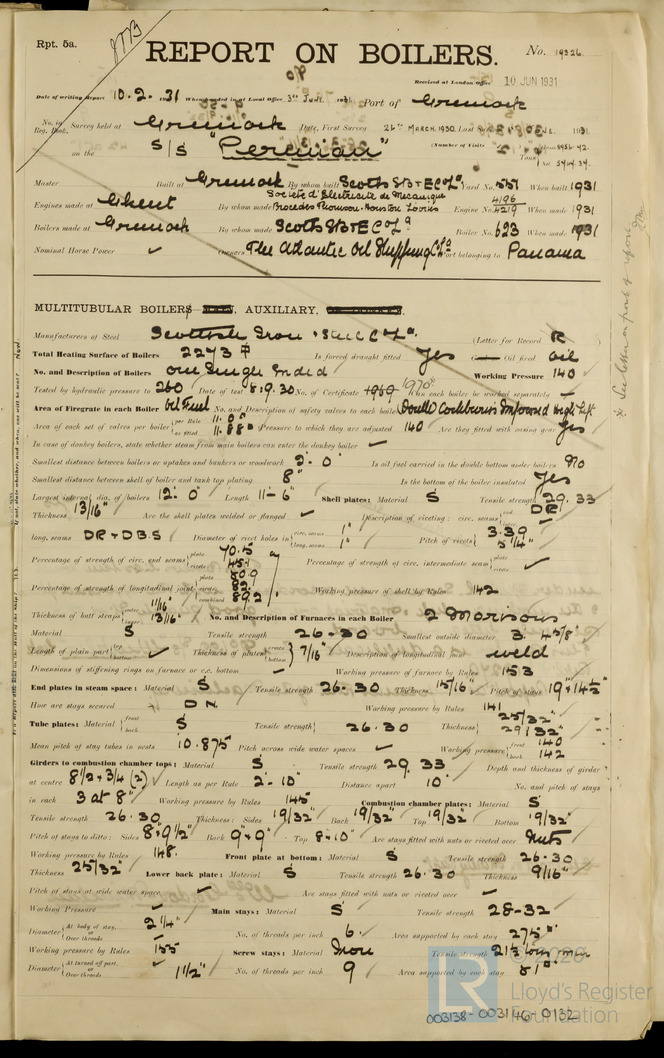 Rpt. 5a.
REPORT ON BOILERS.
No. 19326
Received at London Office 10 JUN 1931
Date of writing Report 10.2.31 When handed in at Local Office 3rd June 1931 Port of Greenock
No. in Reg. Book. Survey held at Greenock Date, First Survey 26th MARCH 1930 Last 1931
on the S/S "Peruvian" (Number of Visits Tons
Master Built at Greenock By whom built Scotts SB & E Co Ld Yard No. 551 When built 1931
Engines made at Ghent By whom made Societe d'Electricite de Mecanique Procedes Thomson-Houston Engine No. 4196 4219 When made 1931
Boilers made at Greenock By whom made Scotts SB & E Co Ld Boiler No. 623 When made 1931
Nominal Horse Power ✓ Owners The Atlantic Oil Shipping Co Ld Port belonging to Panama
MULTITUBULAR BOILERS AUXILIARY,
Manufacturers of Steel Scottish Iron & Steel Co Ld. (Letter for Record R
Total Heating Surface of Boilers 2273 Is forced draught fitted Yes Oil fired oil
No. and Description of Boilers One Single Ended Working Pressure 140
Tested by hydraulic pressure to 260 Date of test 8.9.30 No. of Certificate 1969 1970 Can each boiler be worked separately ✓
Area of Firegrate in each Boiler Oil Fuel No. and Description of safety valves to each boiler Double Cockburns Improved High Lift
Area of each set of valves per boiler per Rule 11.03 as fitted 11.88 Pressure to which they are adjusted 140 Are they fitted with easing gear Yes
In case of donkey boilers, state whether steam from main boilers can enter the donkey boiler ✓
Smallest distance between boilers or uptakes and bunkers or woodwork 2'-0" Is oil fuel carried in the double bottom under boilers No
Smallest distance between shell of boiler and tank top plating 8" Is the bottom of the boiler insulated Yes
Largest internal dia. of boilers 12'-0" Length 11'-6" Shell plates: Material S Tensile strength 29.33
Thickness 13/16" Are the shell plates welded or flanged ✓ Description of riveting: circ. seams DR
long. seams DR & DBS Diameter of rivet holes in circ. seams 1" long. seams 1" Pitch of rivets 3.39 5 1/4"
Percentage of strength of circ. end seams plate 70.5 rivets 45.1 Percentage of strength of circ. intermediate seam ✓
Percentage of strength of longitudinal joint plate rivets combined 89.2 Working pressure of shell by Rules 142
Thickness of butt straps 11/16" 13/16" No. and Description of Furnaces in each Boiler 2 Morisons
Material S Tensile strength 26-30 Smallest outside diameter 3' 4 5/8"
Length of plain part top bottom ✓ Thickness of plates crown bottom 7/16" Description of longitudinal joint weld
Dimensions of stiffening rings on furnace or c.c. bottom ✓ Working pressure of furnace by Rules 153
End plates in steam space: Material S Tensile strength 26-30 Thickness 15/16" Pitch of stays 19" × 14 1/2"
How are stays secured DN Working pressure by Rules 141
Tube plates: Material front back S Tensile strength 26-30 Thickness 25/32" 29/32"
Mean pitch of stay tubes in nests 10.875 Pitch across wide water spaces ✓ Working pressure front 140 back 142
Girders to combustion chamber tops: Material S Tensile strength 29.33 Depth and thickness of girder
at centre 8 1/2 × 3/4 (2) Length as per Rule 2'-10" Distance apart 10" No. and pitch of stays
in each 3 at 8" Working pressure by Rules 145 Combustion chamber plates: Material S
Tensile strength 26.30 Thickness: Sides 19/32" Back 19/32" Top 19/32" Bottom 19/32"
Pitch of stays to ditto: Sides 8" × 9 1/2" Back 9" × 9" Top 8 × 10" Are stays fitted with nuts or riveted over Nuts
Working pressure by Rules 148. Front plate at bottom: Material S Tensile strength 26-30
Thickness 25/32" Lower back plate: Material S Tensile strength 26-30 Thickness 9/16"
Pitch of stays at wide water space ✓ Are stays fitted with nuts or riveted over ✓
Working Pressure ✓ Main stays: Material S Tensile strength 28-32
Diameter At body of stay, or Over threads 2 1/4" No. of threads per inch 6 Area supported by each stay 275"
Working pressure by Rules 155 Screw stays: Material Iron Tensile strength 21 1/2 tons min
Diameter At turned off part, or Over threads 1 1/2" No. of threads per inch 9 Area supported by each stay 81"
© 2020
LR Lloyd's Register Foundation
003138-003146-0132